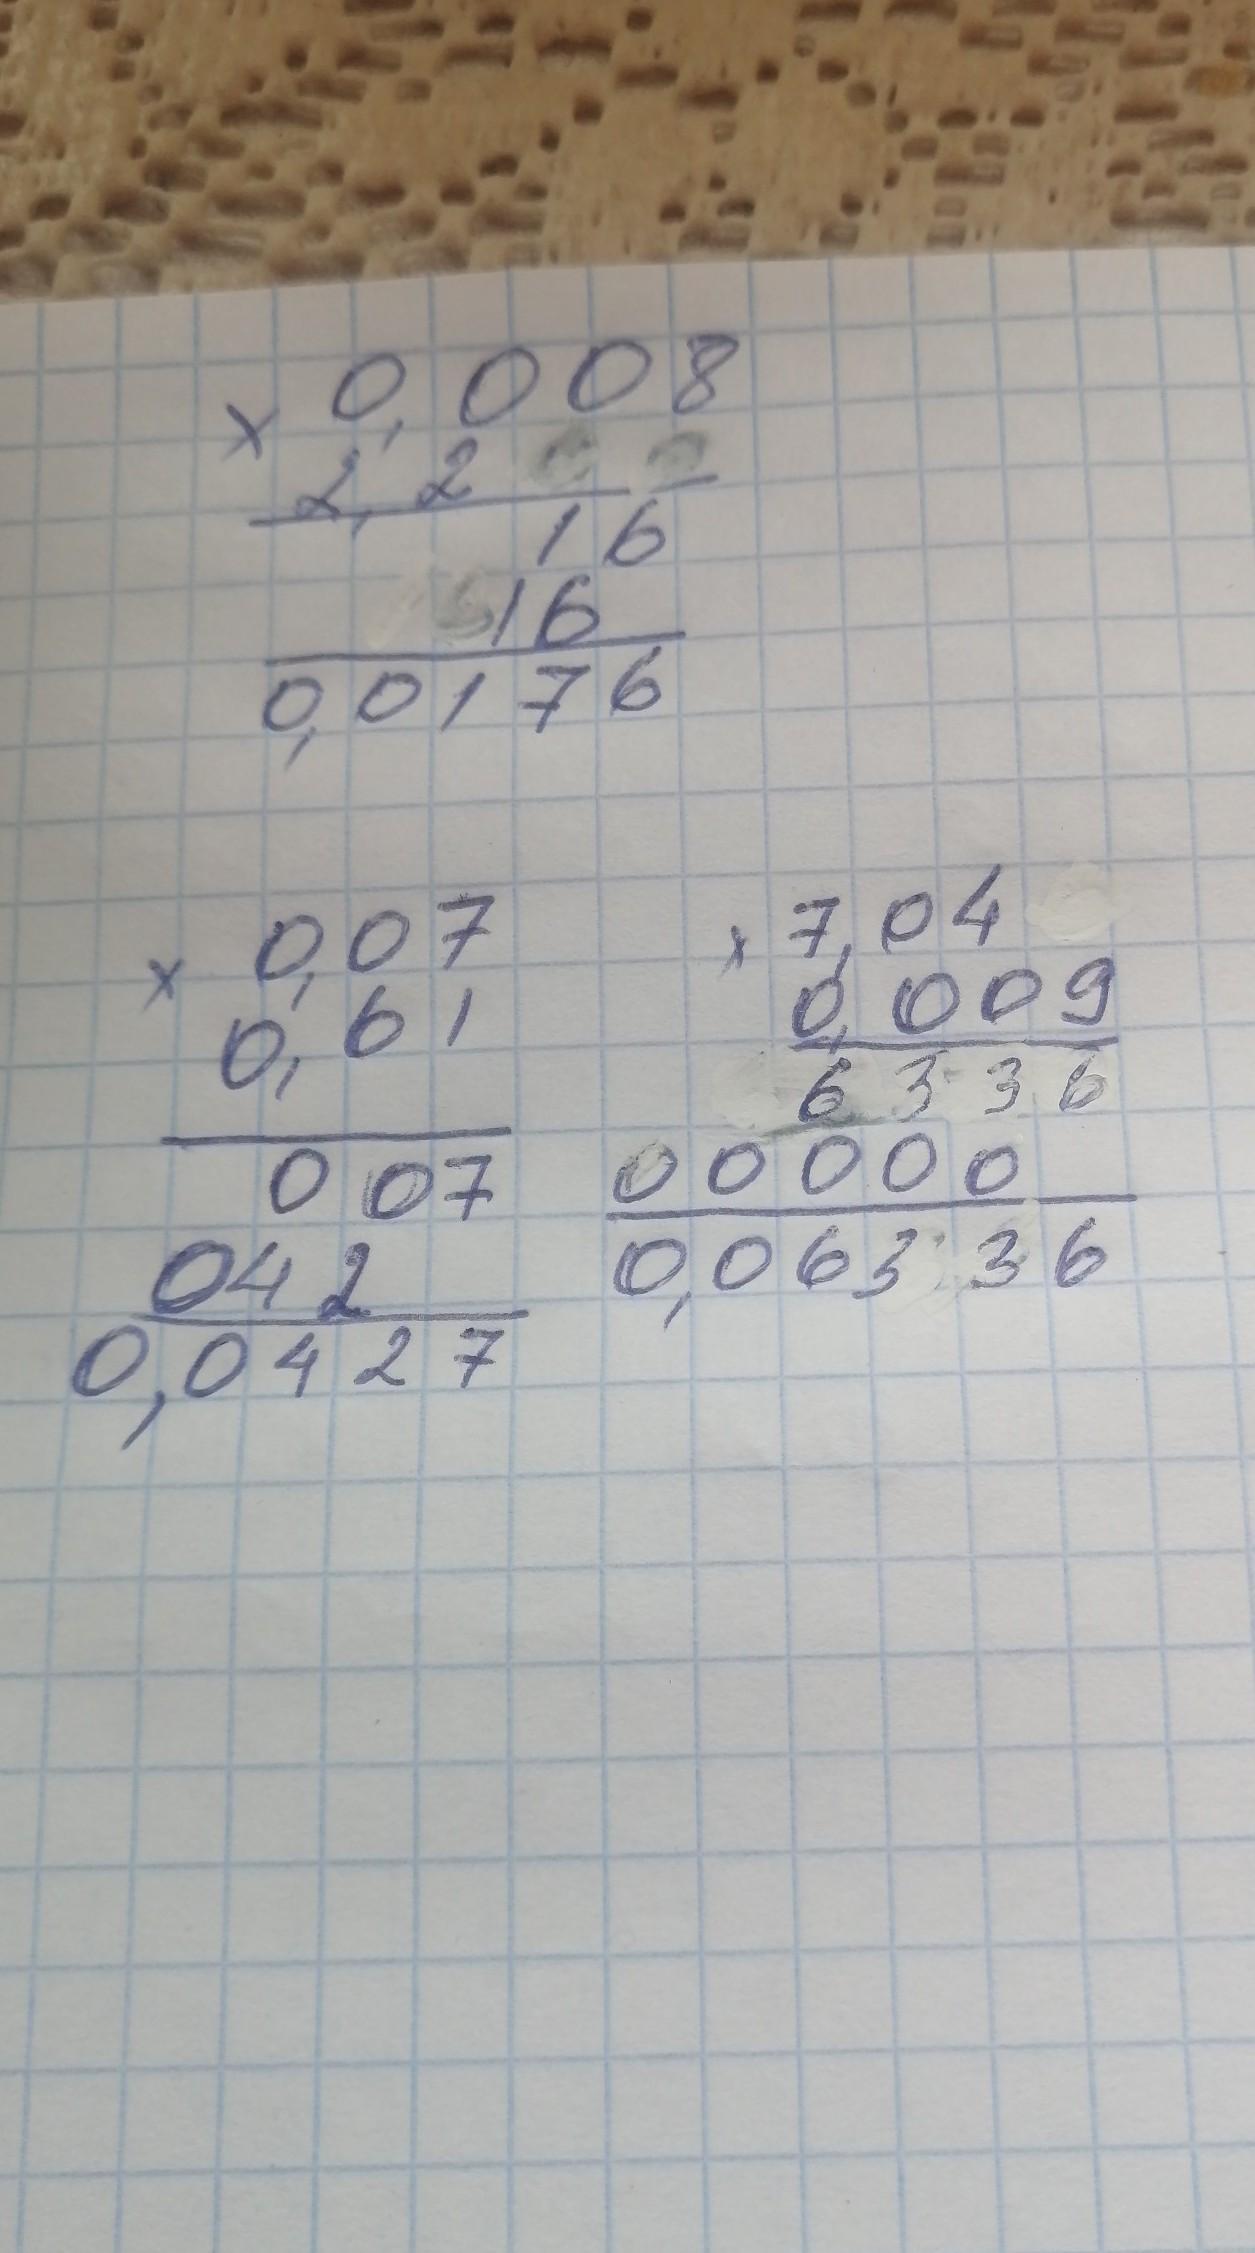 × 0,008
2,2
16
16
0,00176
× 0,07
0,61
007
042
0,0427
× 7,04
0,009
6336
00000
0,06336